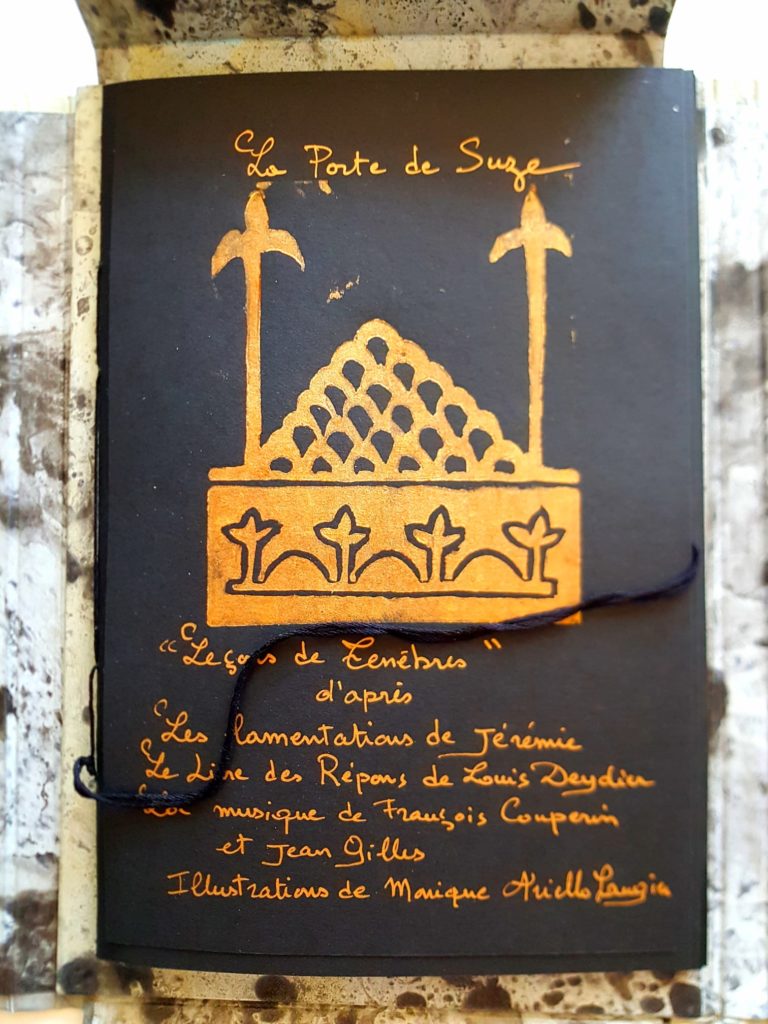 La Porte de Suze
"Leçons de Tenèbres"
d'après
Les lamentations de Jérémie
Le Livre des Répons de Louis Deydier
La musique de François Couperin
et Jean Gilles
Illustrations de Monique Ariello Laugier